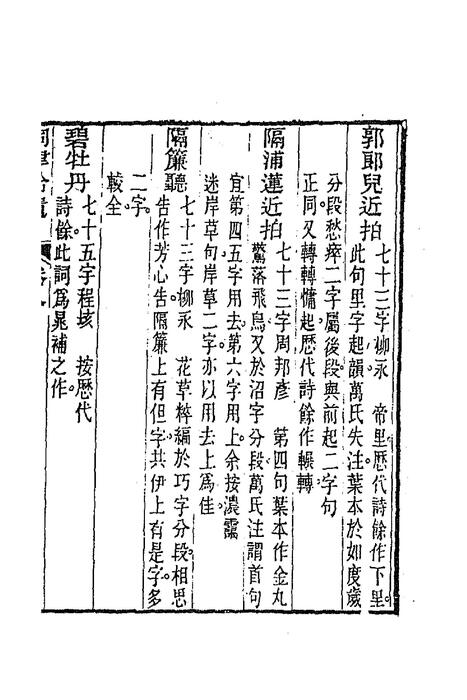 郭郎兒近拍
七十三字柳永　帝里歷代詩餘作下里
此句里字起韻萬氏失注葉本於如度歲
分段愁瘁二字屬後段與前起二字句
正同又轉轉慵起歷代詩餘作輾轉
隔浦蓮近拍
七十三字周邦彥　第四句葉本作金丸
驚落飛鳥又於沼字分段萬氏注謂首句
宜第四五字用去第六字用上余按濃靄
迷岸草句岸草二字亦以用去上為佳
隔簾聽
七十三字柳永　花草粹編於巧字分段相思
告作芳心告隔簾上有但字共伊上有是字多
二字
較全
碧牡丹
七十五字程垓　按歷代
詩餘此詞為晁補之作